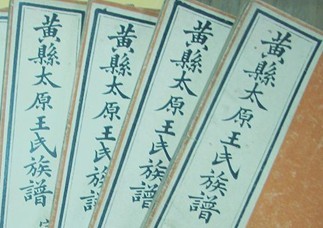 黃縣太原王氏族譜
黃縣太原王氏族譜
黃縣太原王氏族譜
黃縣太原王氏族譜